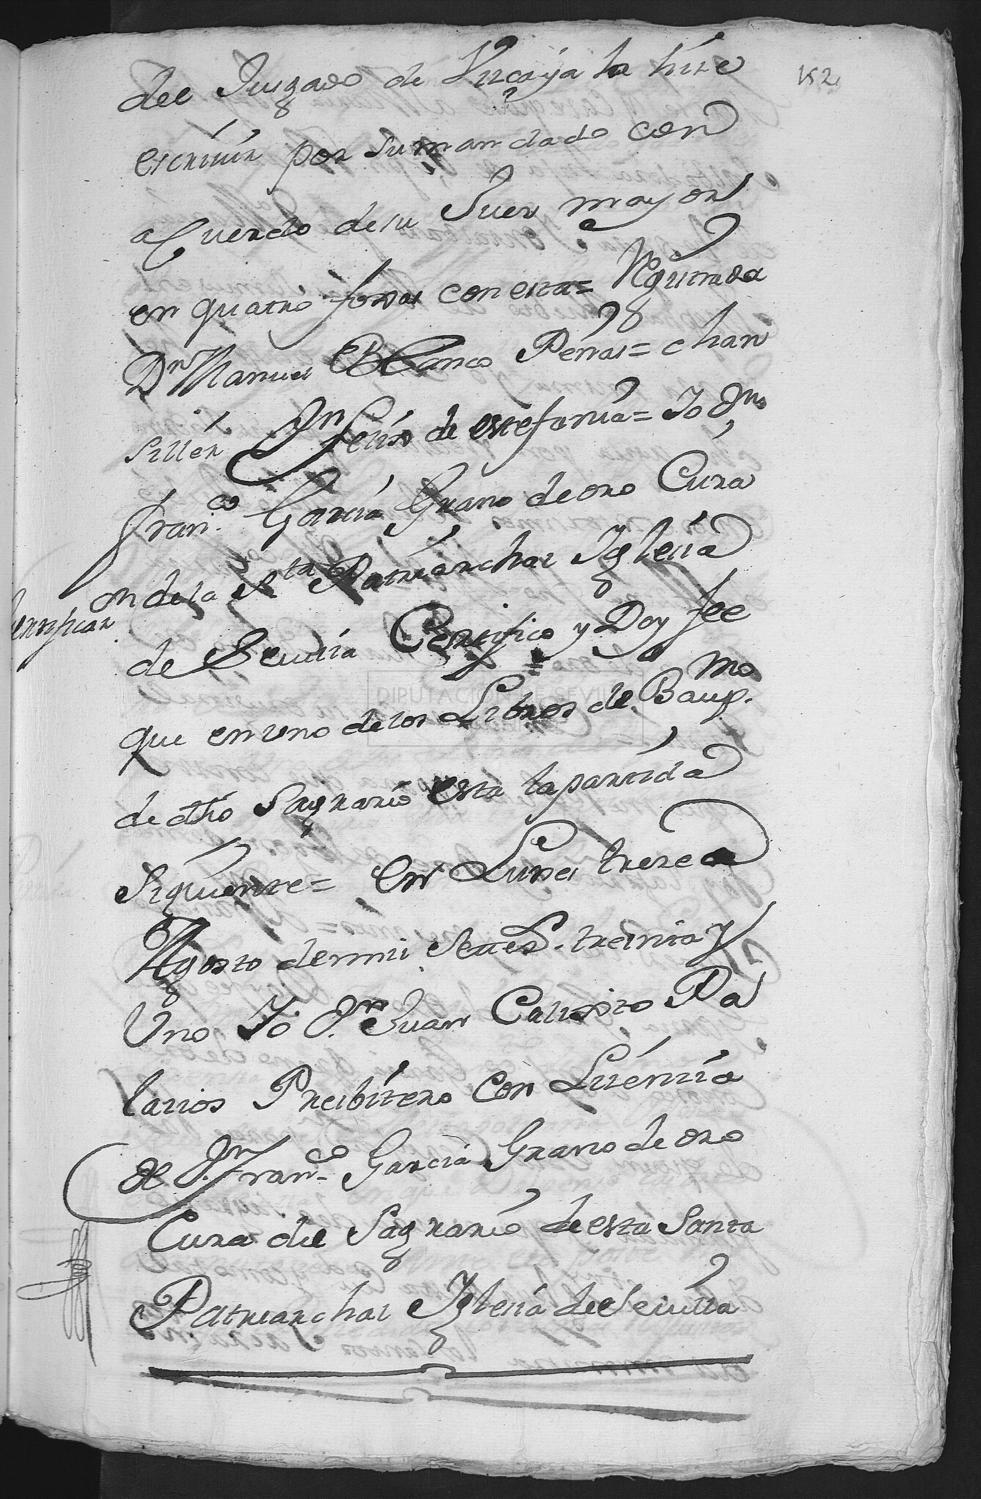 152
del Juzgado de Vizcaya la hize
escriuir por su mandado con
aCuerdo de su Juez mayor
en quatro foxas con esta= Registrada
Dn Manuel Blanco Peñas= chan
siller Dn Felis de estefania= Yo Dn
Franco Garcia Grano de oro Cura
en de la Sta Patriarchal Iglesia
de Seuilla Certifico y Doy fee
que en uno de los Libros de Baupmo
de dho Sagrario esta la partida
siguiente= En Lunes treze de
Agosto de mil Settes. treinta y
Uno Yo Dn Juan Calixto Pa
lacios Presbitero Con Lizenzia
de Dn Franco Garcia Grano de oro
Cura del Sagrario de esta Santa
Patriarchal Iglesia de Seuilla
DIPUTACION DE SEVILLA